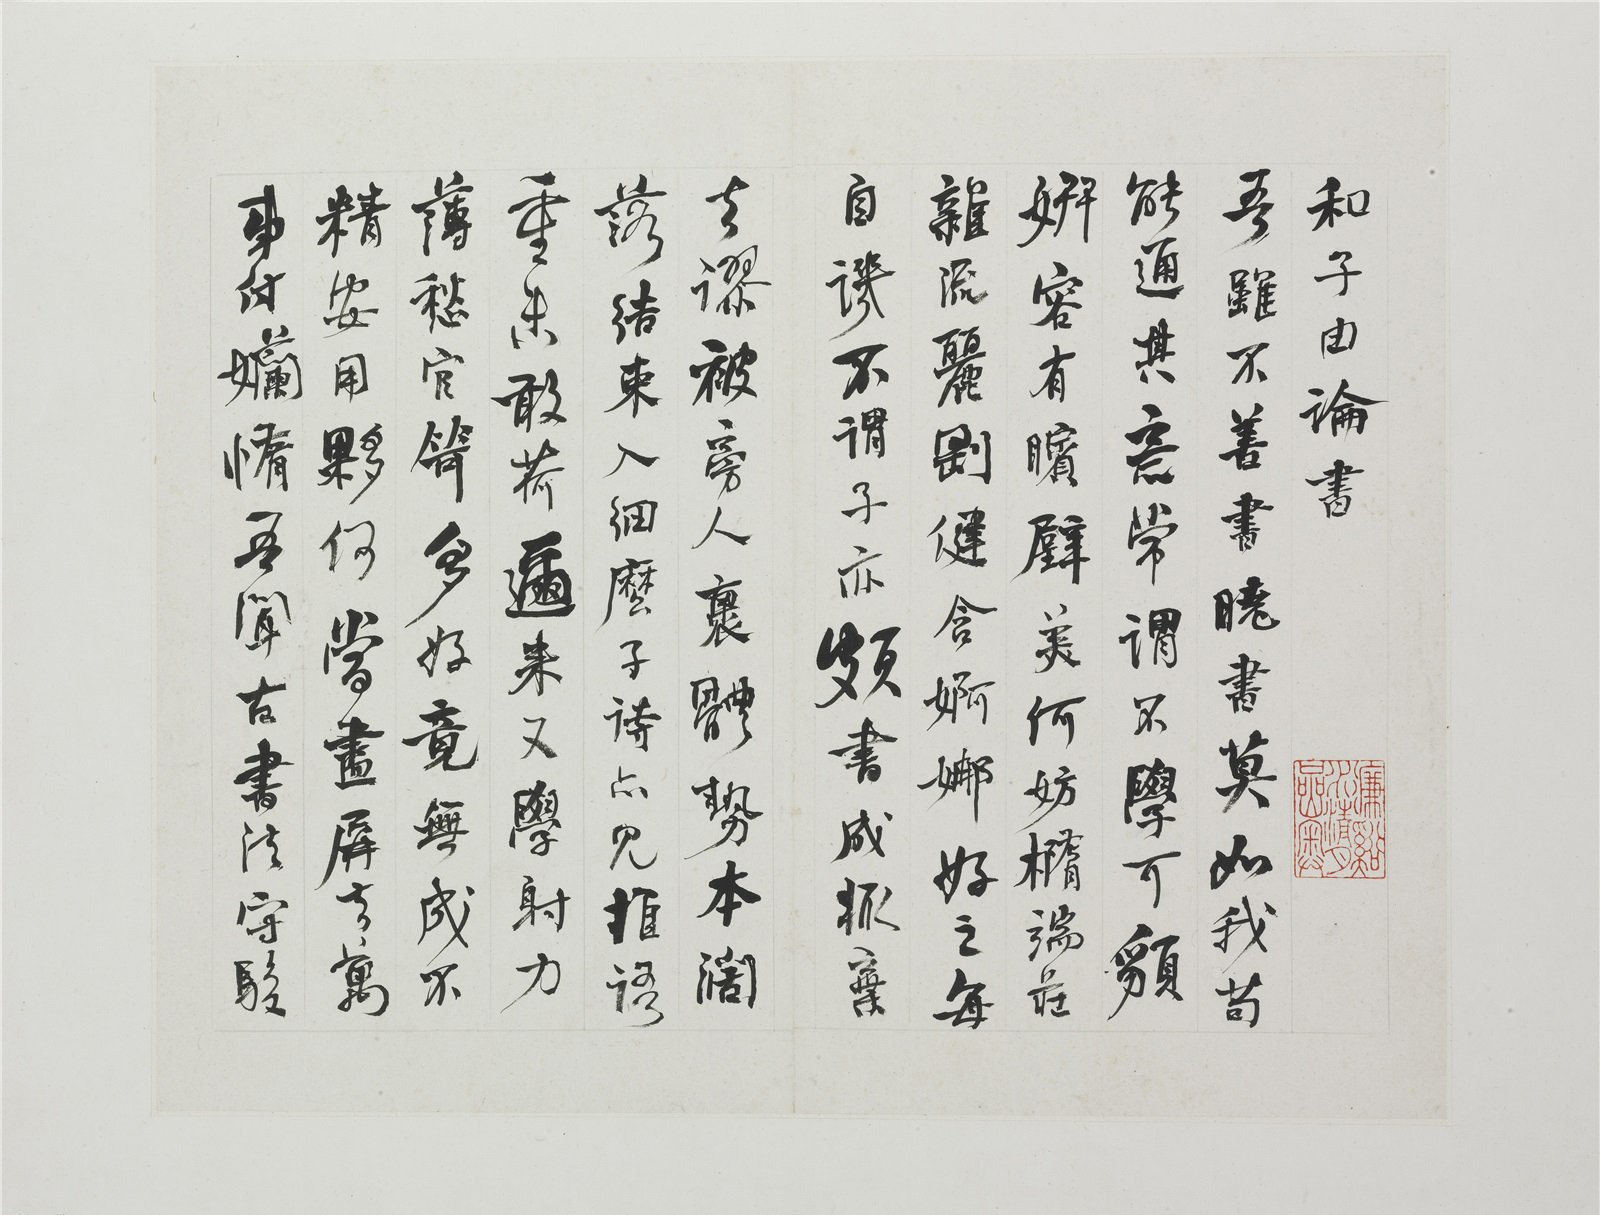 和子由論書
吾雖不善書曉書莫如我苟
能通其意常謂不學可貌
妍容有矉璧美何妨橢端莊
雜流麗剛健含婀娜好之每
自譏不謂子亦頗書成輒棄
去謬被旁人裹體勢本闊
落結束入細麼子詩亦見推語
重未敢荷邇來又學射力
薄愁官笴多好竟無成不
精安用夥何當盡屏去萬
事付嬾惰吾聞古書法守駿